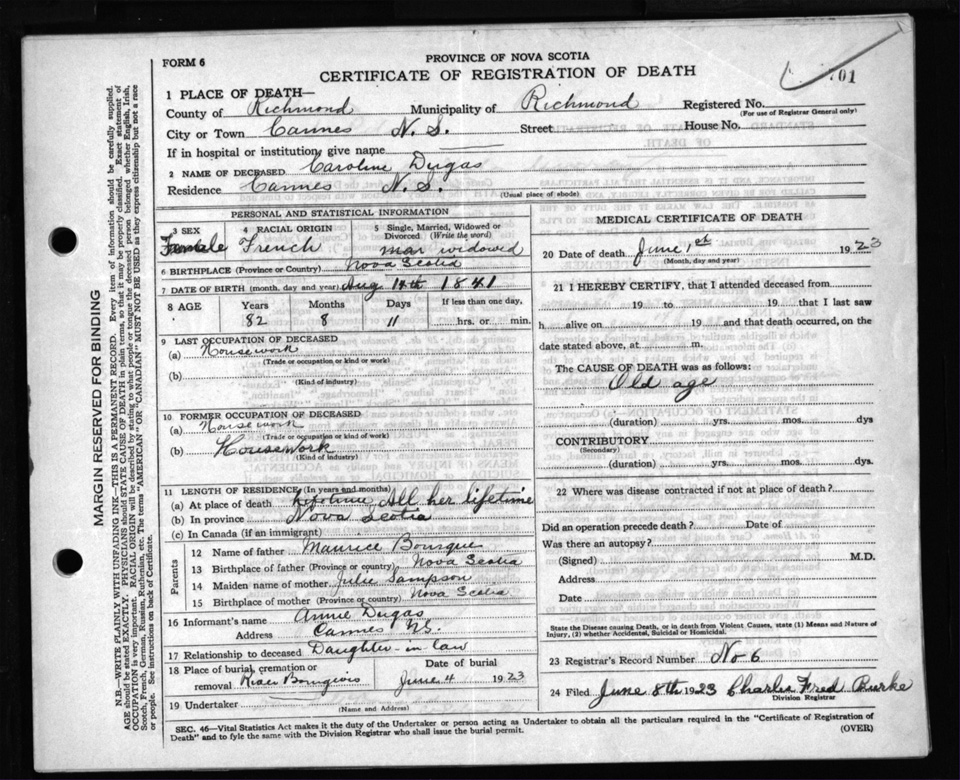 FORM 6
PROVINCE OF NOVA SCOTIA
CERTIFICATE OF REGISTRATION OF DEATH
701
1 PLACE OF DEATH—
County of Richmond Municipality of Richmond Registered No.
(For use of Registrar General only)
City or Town Cannes N.S. Street House No.
If in hospital or institution, give name
2 NAME OF DECEASED Caroline Dugas
Residence Cannes N.S.
(Usual place of abode)
PERSONAL AND STATISTICAL INFORMATION
3 SEX 4 RACIAL ORIGIN 5 Single, Married, Widowed or Divorced (Write the word)
Female French mar widowed
6 BIRTHPLACE (Province or Country) Nova Scotia
7 DATE OF BIRTH (month, day and year) Aug 14th 1841
8 AGE Years Months Days If less than one day,
82 8 11 hrs. or min.
9 LAST OCCUPATION OF DECEASED
(a) Housework
(Trade or occupation or kind or work)
(b)
(Kind of industry)
10 FORMER OCCUPATION OF DECEASED
(a) Housework
(Trade or occupation or kind or work)
(b) HouseWork
(Kind of industry)
11 LENGTH OF RESIDENCE (In years and months)
(a) At place of death All her lifetime
(b) In province Nova Scotia
(c) In Canada (if an immigrant)
Parents
12 Name of father Maurice Bourque
13 Birthplace of father (Province or country) Nova Scotia
14 Maiden name of mother Julie Sampson
15 Birthplace of mother (Province or country) Nova Scotia
16 Informant's name Annie Dugas
Address Cannes N.S.
17 Relationship to deceased Daughter-in law
18 Place of burial, cremation or removal River Bourgeois Date of burial June 4 1923
19 Undertaker
(Name and Address)
MEDICAL CERTIFICATE OF DEATH
20 Date of death June 1st 1923
(Month, day and year)
21 I HEREBY CERTIFY, that I attended deceased from
19 to 19 that I last saw
h alive on 19 and that death occurred, on the
date stated above, at m.
The CAUSE OF DEATH was as follows:
Old age
(duration) yrs. mos. dys
CONTRIBUTORY
(Secondary)
(duration) yrs. mos. dys.
22 Where was disease contracted if not at place of death?
Did an operation precede death? Date of
Was there an autopsy?
(Signed) M.D.
Address
Date
State the Disease causing Death, or in death from Violent Causes, state (1) Means and Nature of
Injury, (2) whether Accidental, Suicidal or Homicidal.
23 Registrar's Record Number No 6
24 Filed June 8th 1923 Charles Fred Burke
Division Registrar
SEC. 46—Vital Statistics Act makes it the duty of the Undertaker or person acting as Undertaker to obtain all the particulars required in the "Certificate of Registration of
Death" and to fyle the same with the Division Registrar who shall issue the burial permit. (OVER)
MARGIN RESERVED FOR BINDING
N.B.—WRITE PLAINLY WITH UNFADING INK—THIS IS A PERMANENT RECORD. Every item of information should be carefully supplied.
AGE should be stated EXACTLY. PHYSICIANS should STATE CAUSE OF DEATH in plain terms, so that it may be properly classified. Exact statement of
OCCUPATION is very important. RACIAL ORIGIN will be described by stating to what people or tongue the deceased person belonged whether English, Irish,
Scotch, French, German, Russian, Ruthenian, etc. The terms "AMERICAN" OR "CANADIAN" MUST NOT BE USED as they express citizenship but not a race
or people. See instructions on back of Certificate.